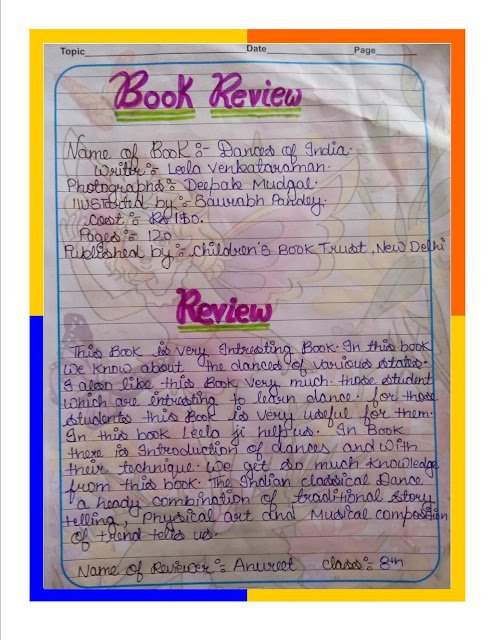 Topic Date Page
Book Review
Name of Book :- Dances of India.
Writer :- Leela Venkataraman.
Photographs :- Deepak Mudgal.
Illustrated by :- Saurabh Pandey.
Cost :- Rs 150.
Pages :- 120
Published by :- Children's Book Trust, New Delhi
Review
This Book is very Intrasting Book. In this book
we know about the dances of various states.
I also like this Book very much. those student
which are intrasting to learn dance. for those
students this Book is very useful for them.
In this book Leela ji help us. In Book
there is Introduction of dances and with
their technique. We get so much knowledge
from this book. The Indian classical Dance
a heady combination of traditional story
telling, Physical art and Musical composition
of trend tells us.
Name of Reviewer :- Anureet class :- 8th